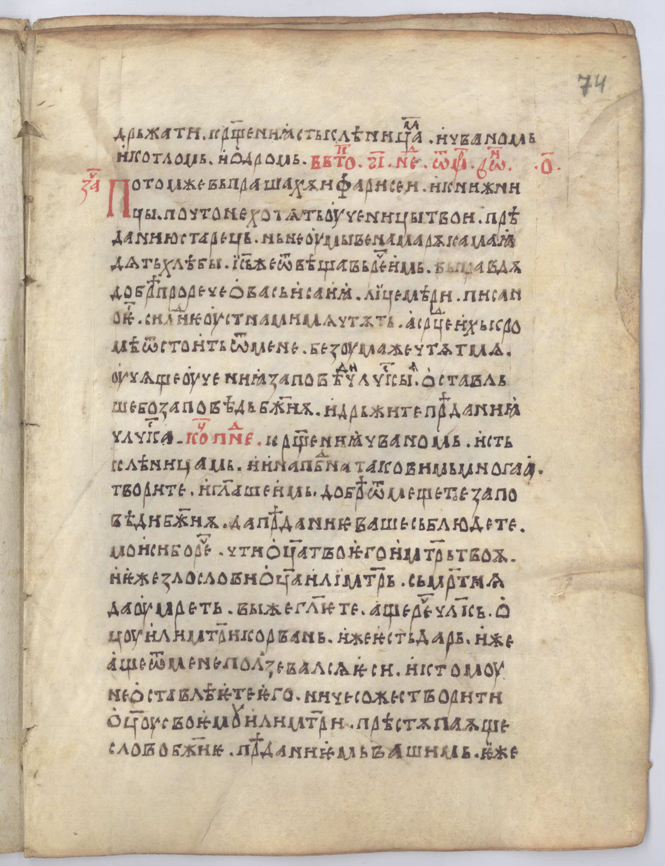 74
дрьжати . крщ҃ениꙗ стькленицамꙿ . и чваномь
и котломь . и ѡдромь . вь вто҃ . зı҃ . не҃ . ѿ пѧ҃ . еѵⷩ҇ѡ҃ . ѻ҃ .
за҃ч Потомже вьпрашахѫ и фарисеи . и книжни
цы . почто не хотѧть оученицы твои . прѣ
данию старець . нь неоумывенама рѫкама ꙗ
дѧть хлѣбы . іс҃ьже ѿвѣщавь реч҃ имь . быша вдѧ
добрѣ прорече ѻ вась исаиꙗ . лицемѣри . писан
о ѥ҃ . си лю҃дик оустнами мѧ чтѫть . а срд҃це ихь кро
мѣ ѿстоить ѿ мене . без оума же чтѧт мѧ .
оучѧще оучениꙗ заповѣдии чл҃ч҃кыѧ . ѻставль
ше бо заповѣдь бж҃иѧ . и дрьжите прѣ҃даниꙗ
чл҃чка . ко҃ц пнⷣе . крщ҃ениꙗ чваномь . и сть
кленицамь . и ина пдⷪ҇бна таковимь многаа .
творите . и гл҃аше имь . добрѣ ѿмещете запо
вѣди бж҃иѧ . да прѣ҃дание ваше сьблюдете .
моиси бо реч҃ . чти ѻц҃а твоѥго и мт҃рь твоѧ .
и иже злословит ѻц҃а или мт҃рь . сьмрт҃иѧ
да оумреть . вы же гл҃ете . аще реч҃ чл҃кь . ѻ
цоу или мт҃ри корвань . иже ѥсть дарь . иже
аще ѿ мене ползевалсѧ ѥси . и к томоу
не ѻставлѣѥте ѥго . ничесоже створити
ѻц҃оу своѥмꙋ или мт҃ри . прѣстѫпаѧще
слово бж҃иѥ . прѣ҃даниѥмь вашимь . ѥже